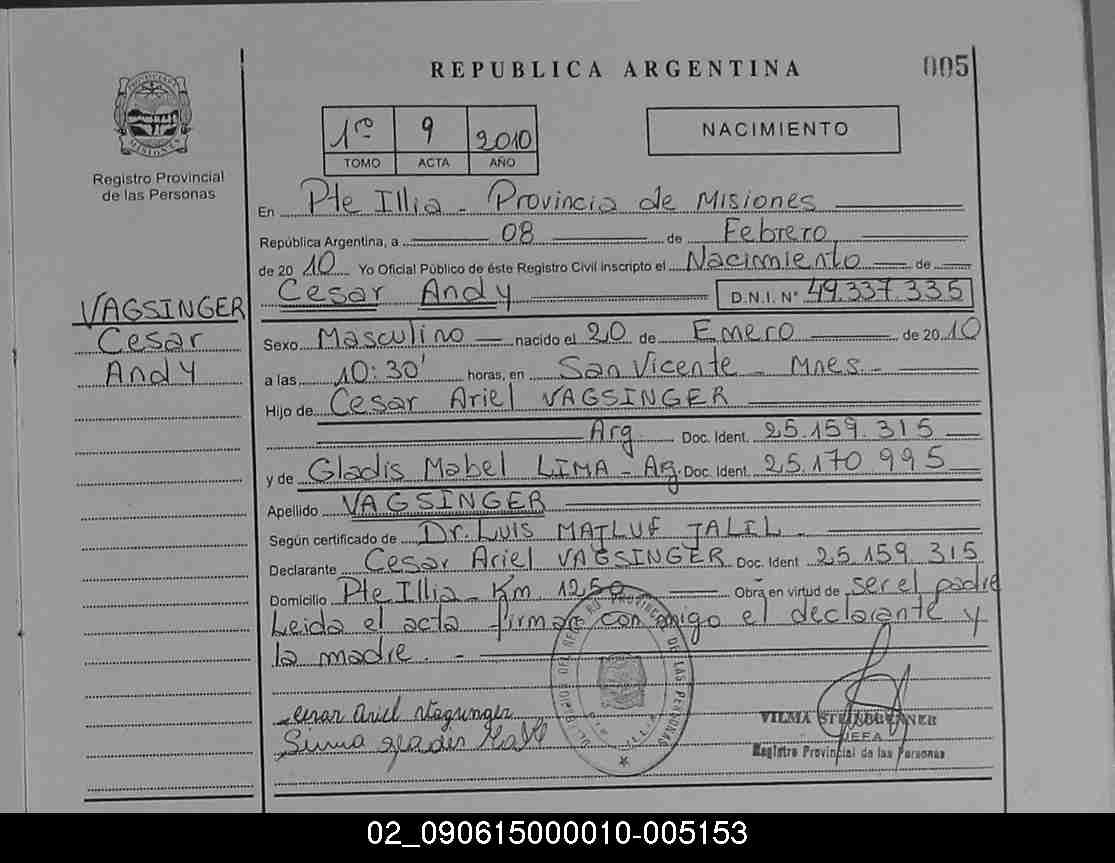 REPUBLICA ARGENTINA
005
PROVINCIA DE MISIONES
Registro Provincial
de las Personas
1ro 9 2010
TOMO ACTA AÑO
NACIMIENTO
En Pte Illia - Provincia de Misiones
República Argentina, a 08 de Febrero
de 20 10 Yo Oficial Público de éste Registro Civil inscripto el Nacimiento de
Cesar Andy D.N.I. N° 49.337.335
VAGSINGER
Cesar
Andy
Sexo Masculino nacido el 20 de Enero de 20 10
a las 10:30' horas, en San Vicente - Mnes.-
Hijo de Cesar Ariel VAGSINGER
Arg Doc. Ident. 25.159.315
y de Gladis Mabel LIMA - Ag. Doc. Ident. 25.170 995
Apellido VAGSINGER
Según certificado de Dr. Luis MATLUF JALIL -
Declarante Cesar Ariel VAGSINGER Doc. Ident 25.159.315
Domicilio Pte Illia - Km. 1250 Obra en virtud de ser el padre
Leida el acta firman conmigo el declarante y
la madre. -
Cesar Ariel Vagsinger
VILMA STEINBRENNER
JEFA
Registro Provincial de las Personas
02_090615000010-005153